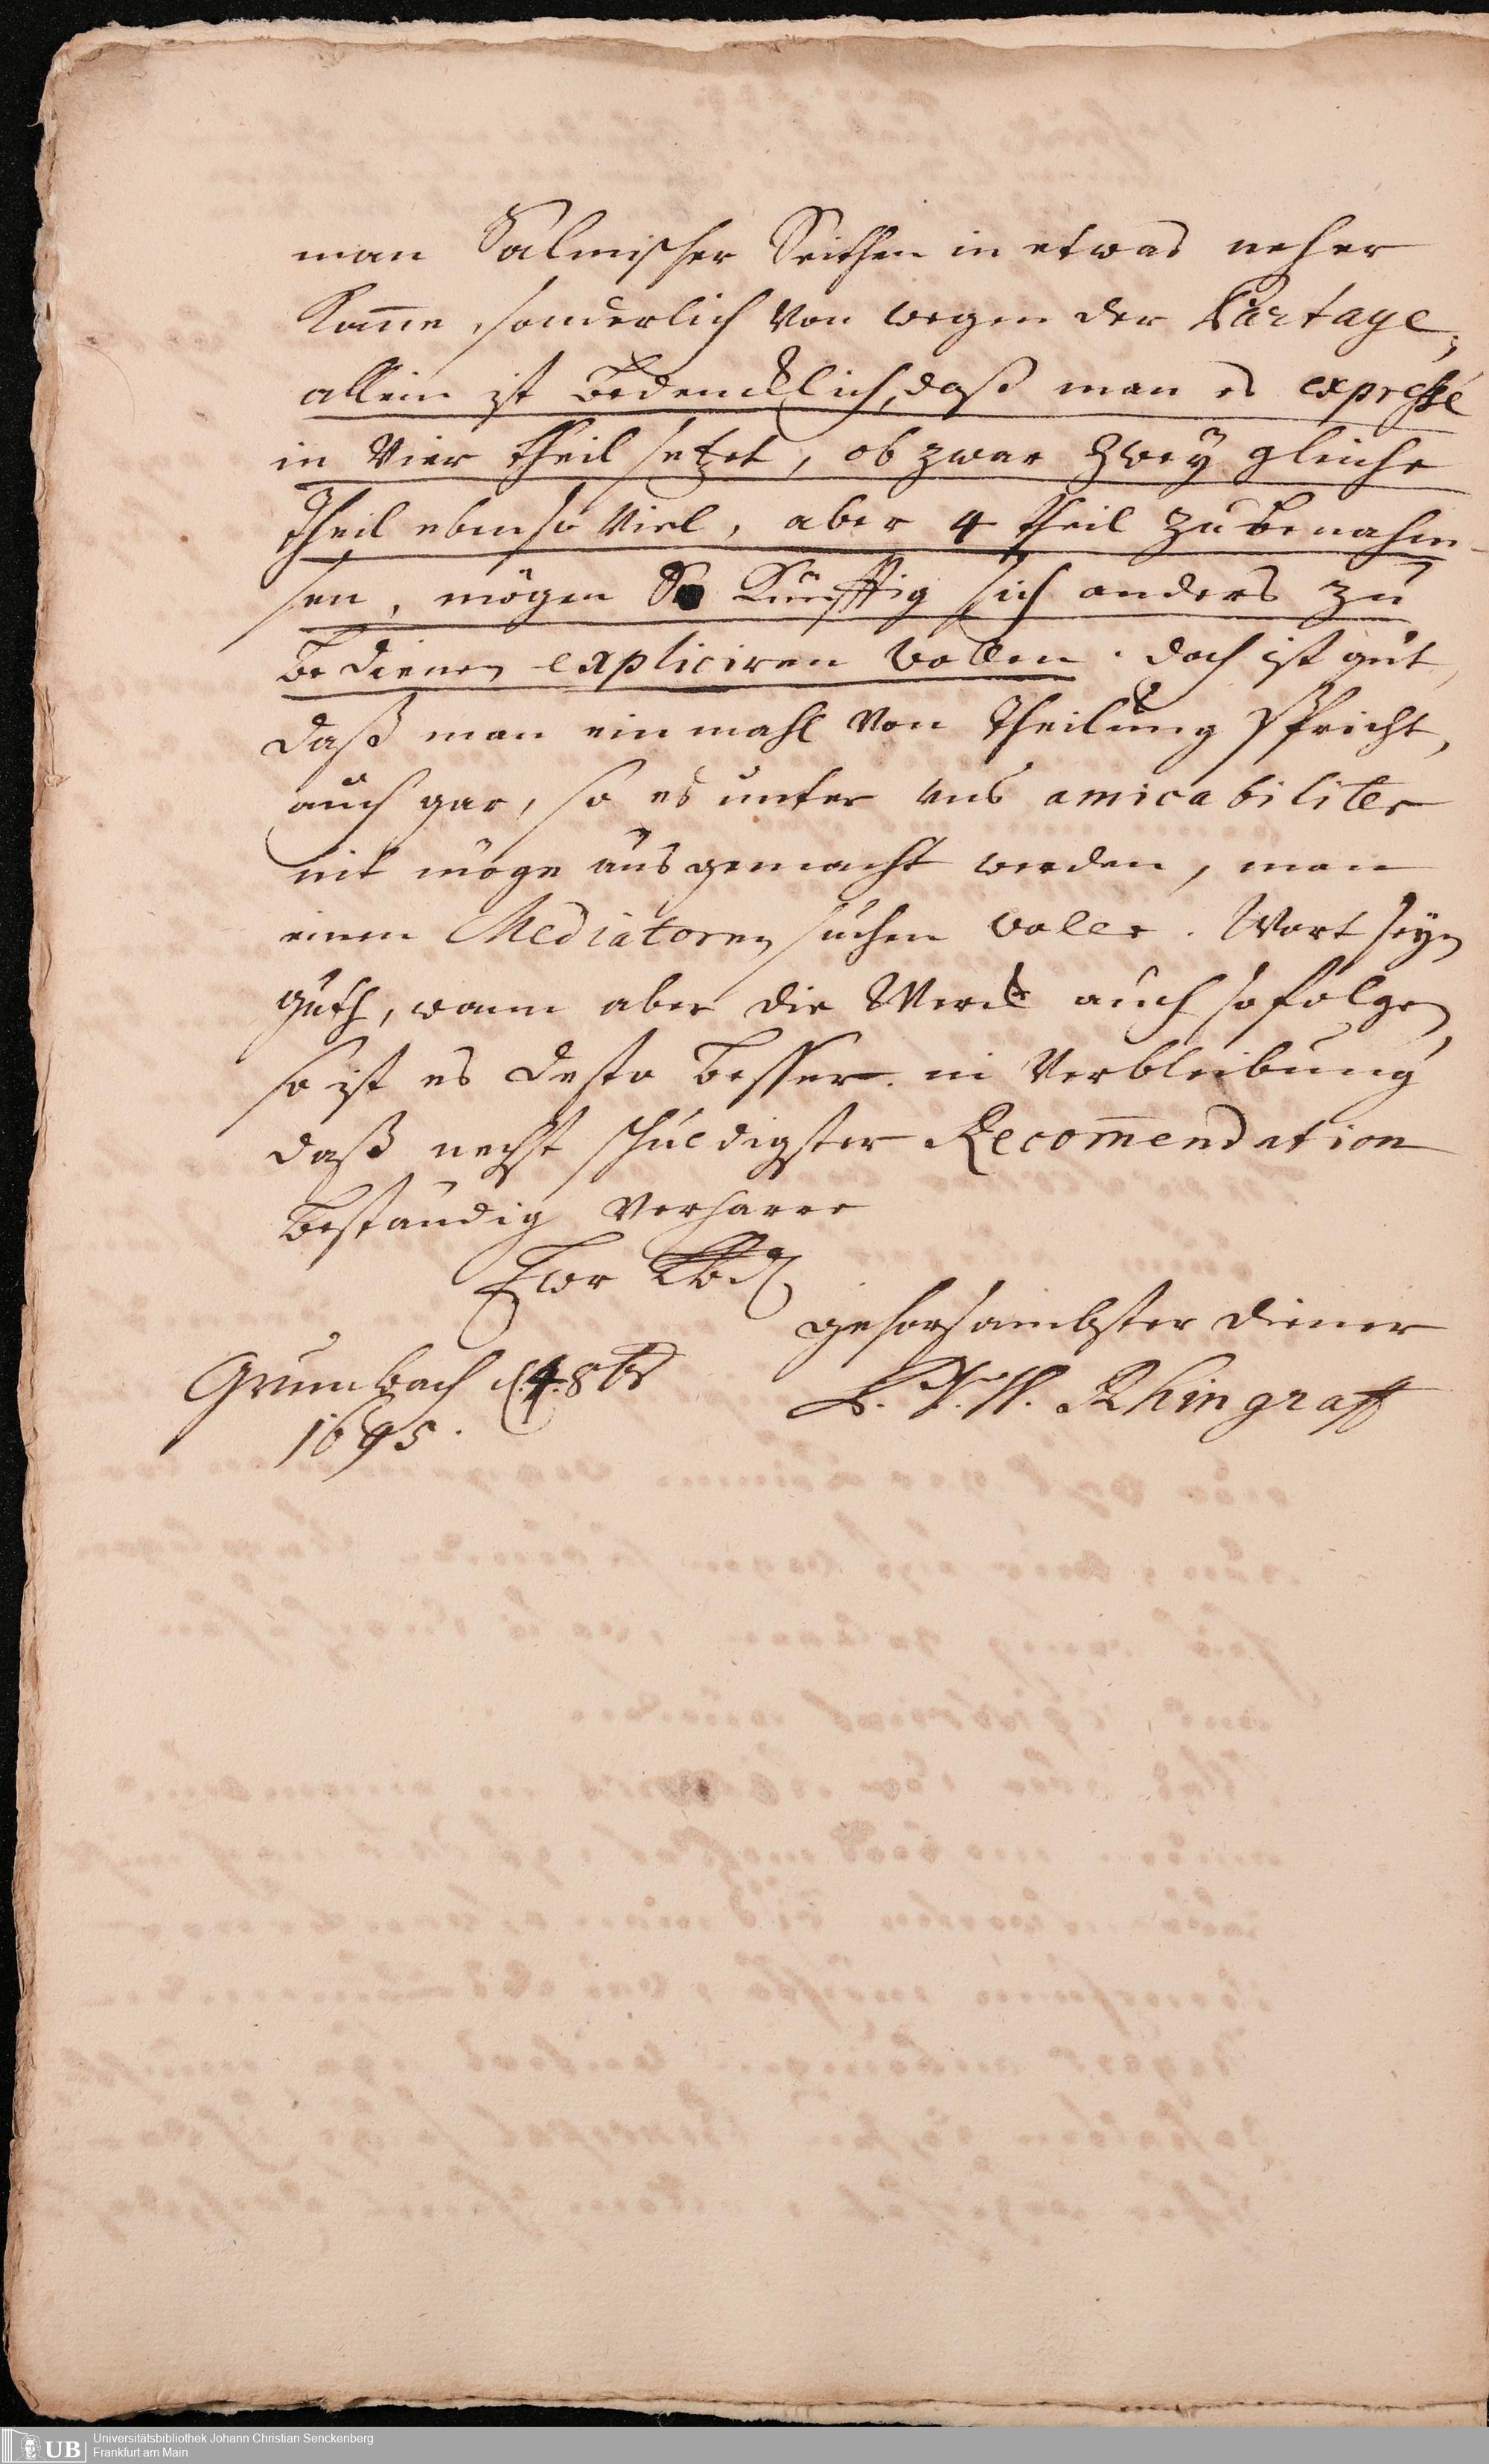 man Salmischer Seithen in etwas neher
Kam̄e, sonderlich von wegen der Partage,
allein ist bedencklich, daß man es expressé
in vier theil setzet, ob zwar zwey gleiche
Theil ebenso viel, aber 4 theil zu benahm-
sen, mögen Sie Künfftig sich anders zu
bedienen expliciren wollen. doch ist gut,
daß man einmahl von Theilung spricht,
auch gar, so es unter uns amicabiliter
nit möge ausgemacht werden, man
einen Mediatoren suchen wolle. Wort seyn
guth, wann aber die Werck auch so folgen,
so ist es desto besser. in Verbleibung
daß nechst schuldigster Recom̄endation
beständig verharre
Ewr Lbd
gehorsambster diener
Grumbach d. 4. 8br
1695.
L. P. W. Rhingraff
Universitätsbibliothek Johann Christian Senckenberg
Frankfurt am Main
UB